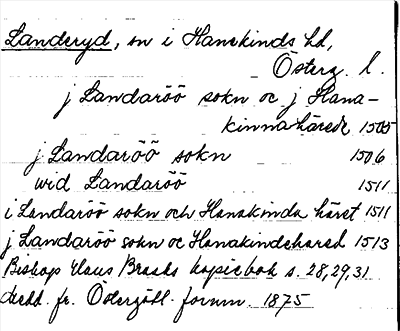 Landeryd, sn i Hanekinds hd,
Österg. l.
j Landaröö sokn oc j Hana-
kinnahärede 1505
j Landaröö sokn 1506
wid Landaröö 1511
i Landaröö sokn och Hanakinda häret 1511
j Landaröö sokn oc Hanakindeharad 1513
Biskop Hans Brasks kopiebok s. 28, 29, 31
Medd. fr. Östergötl. fornm. 1875